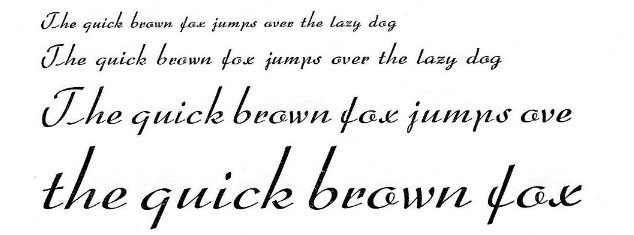 The quick brown fox jumps over the lazy dog
The quick brown fox jumps over the lazy dog
The quick brown fox jumps ove
the quick brown fox